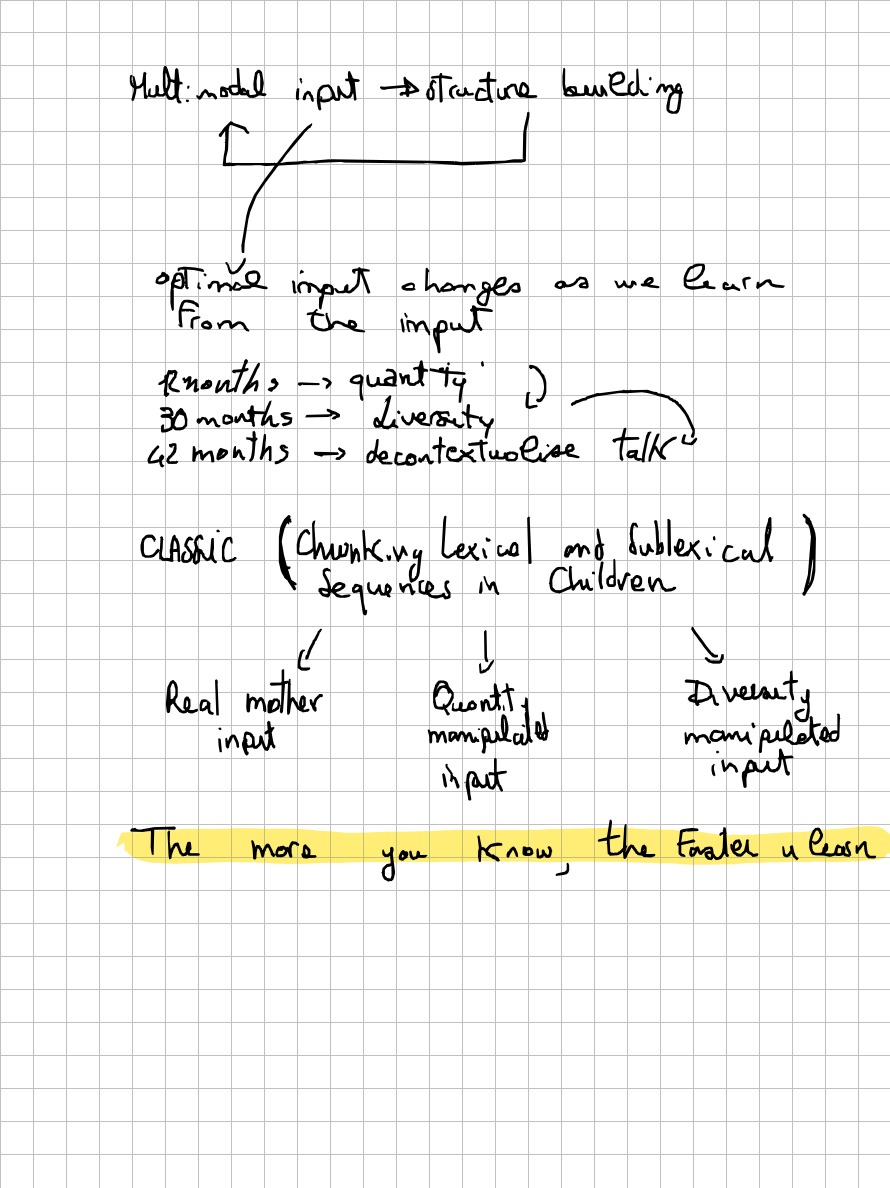 Multimodal input → structure building
optimal input changes as we learn
from the input
12 months → quantity
30 months → diversity
42 months → decontextualise talk
CLASSIC (Chunking Lexical and Sublexical
Sequences in Children)
Real mother
input
Quantity
manipulated
input
Diversity
manipulated
input
The more you know, the Faster u learn